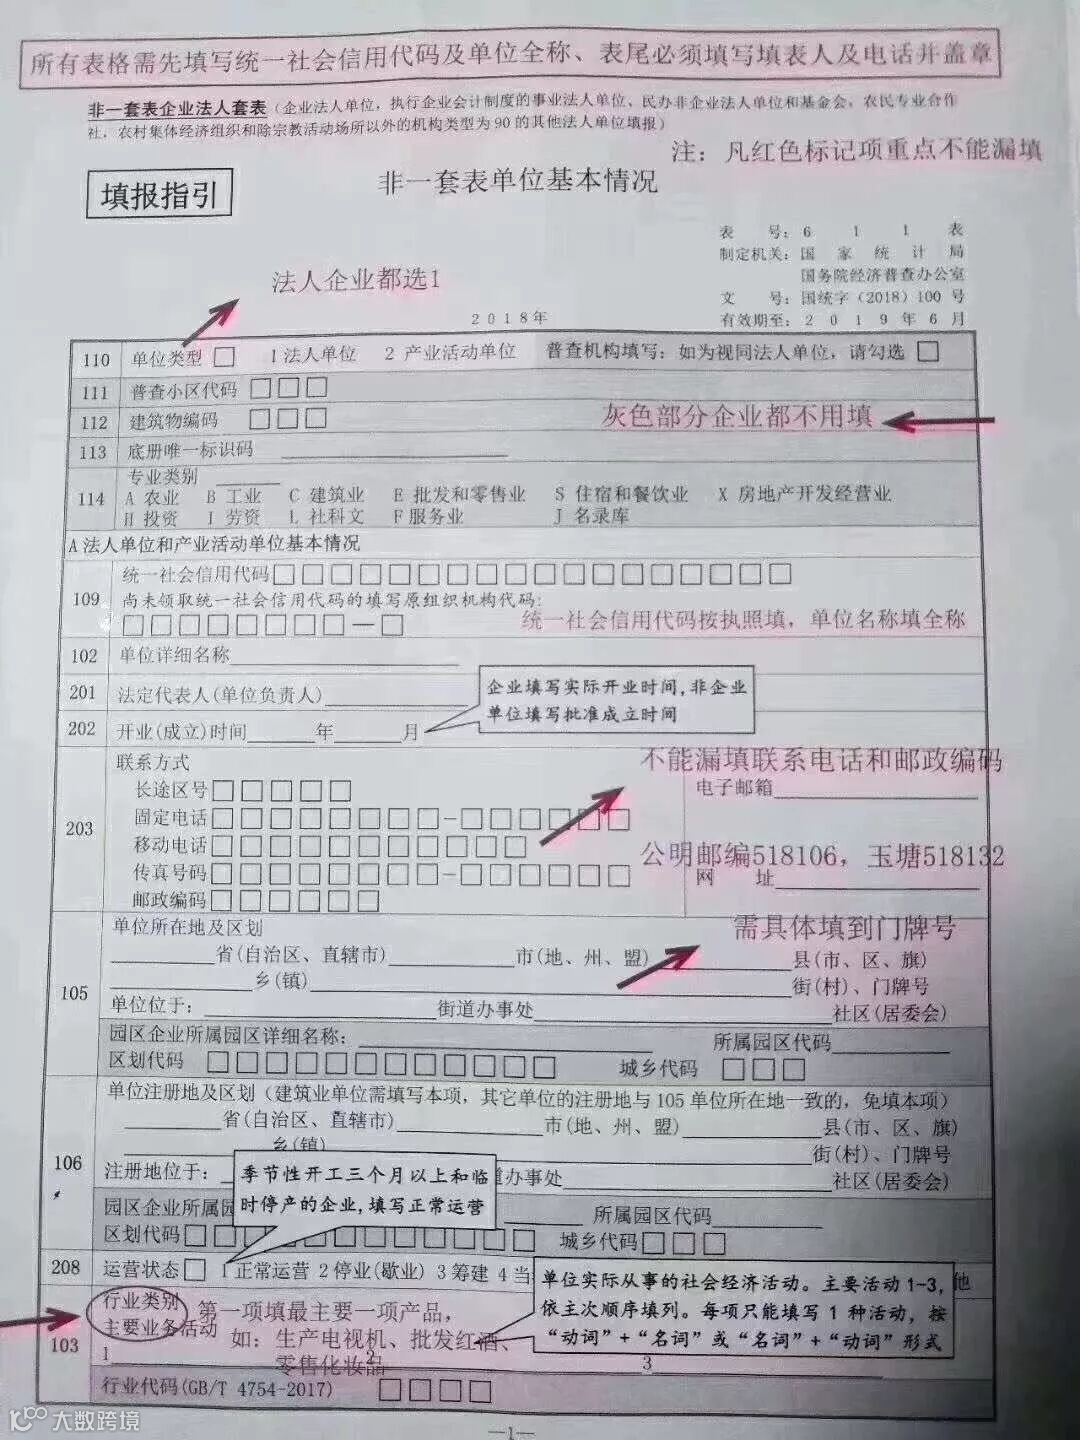 所有表格需先填写统一社会信用代码及单位全称、表尾必须填写填表人及电话并盖章
非一套表企业法人套表(企业法人单位，执行企业会计制度的事业法人单位、民办非企业法人单位和基金会，农民专业合作
社，农村集体经济组织和除宗教活动场所以外的机构类型为90的其他法人单位填报)
注：凡红色标记项重点不能漏填
填报指引
非一套表单位基本情况
表 号：6 1 1 表
制定机关：国 家 统 计 局
国务院经济普查办公室
文 号：国统字(2018)100号
有效期至：2 0 1 9 年 6 月
法人企业都选1
2018年
110 单位类型 □ 1 法人单位 2 产业活动单位 普查机构填写：如为视同法人单位，请勾选 □
111 普查小区代码 □□□
112 建筑物编码 □□□
灰色部分企业都不用填
113 底册唯一标识码
114 专业类别
A 农业 B 工业 C 建筑业 E 批发和零售业 S 住宿和餐饮业 X 房地产开发经营业
H 投资 I 劳资 L 社科文 F 服务业 J 名录库
A 法人单位和产业活动单位基本情况
109 统一社会信用代码□□□□□□□□□□□□□□□□□□
尚未领取统一社会信用代码的填写原组织机构代码:
□□□□□□□□—□
统一社会信用代码按执照填，单位名称填全称
102 单位详细名称
201 法定代表人(单位负责人)
企业填写实际开业时间,非企业
单位填写批准成立时间
202 开业(成立)时间______年______月
203 联系方式
不能漏填联系电话和邮政编码
长途区号□□□□□
电子邮箱
固定电话□□□□□□□□-□□□□□□
移动电话□□□□□□□□□□□
公明邮编518106，玉塘518132
传真号码□□□□□□□□-□□□□□□
网 址
邮政编码□□□□□□
105 单位所在地及区划
需具体填到门牌号
省(自治区、直辖市)______市(地、州、盟)______县(市、区、旗)
乡(镇)______街(村)、门牌号
单位位于：______街道办事处______社区(居委会)
园区企业所属园区详细名称：______所属园区代码
区划代码 □□□□□□□□□□□□ 城乡代码 □□□
106 单位注册地及区划(建筑业单位需填写本项，其它单位的注册地与105单位所在地一致的，免填本项)
省(自治区、直辖市)______市(地、州、盟)______县(市、区、旗)
乡(镇)______街(村)、门牌号
注册地位于：______街道办事处______社区(居委会)
季节性开工三个月以上和临
时停产的企业,填写正常运营
园区企业所属园 所属园区代码
区划代码□□□□□□□□□□□□ 城乡代码□□□
208 运营状态 □ 1 正常运营 2 停业(歇业) 3 筹建 4 当 他
单位实际从事的社会经济活动。主要活动1-3,
依主次顺序填列。每项只能填写1种活动，按
“动词”+“名词”或“名词”+“动词”形式
103 行业类别
主要业务活动
第一项填最主要一项产品，
如：生产电视机、批发红酒、
零售化妆品
1______2______3______
行业代码(GB/T 4754-2017) □□□□
—1—
大数跨境